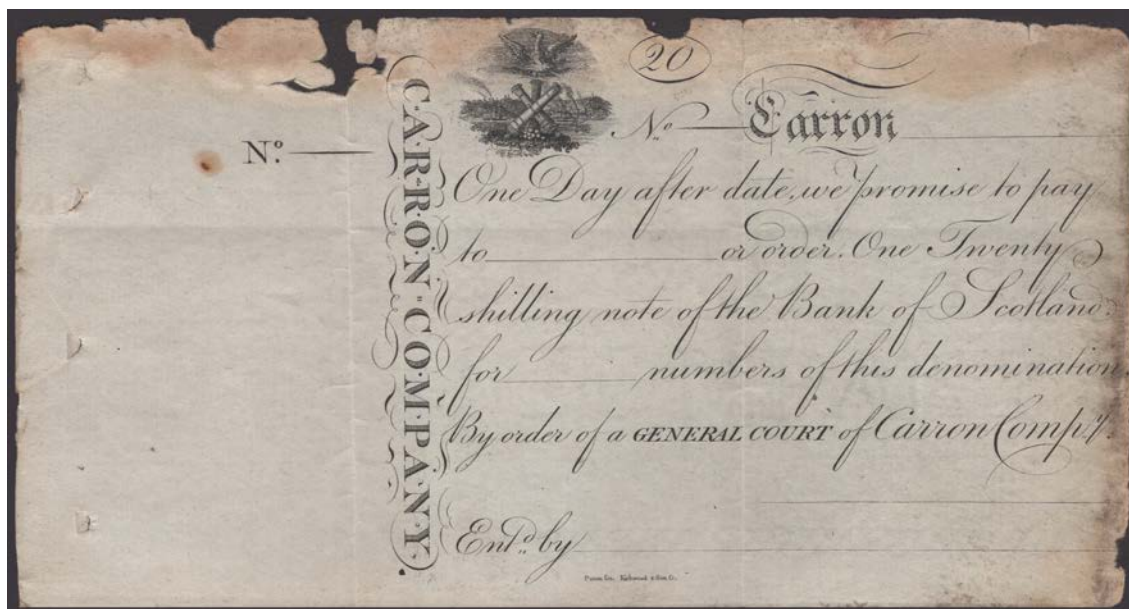 20
Nº
Nº Carron
CARRON=COMPANY.
One Day after date, we promise to pay
to or order. One Twenty
shilling note of the Bank of Scotland:
for numbers of this denomination.
By order of a GENERAL COURT of Carron Compy.
Entd. by
Kirkwood & Son